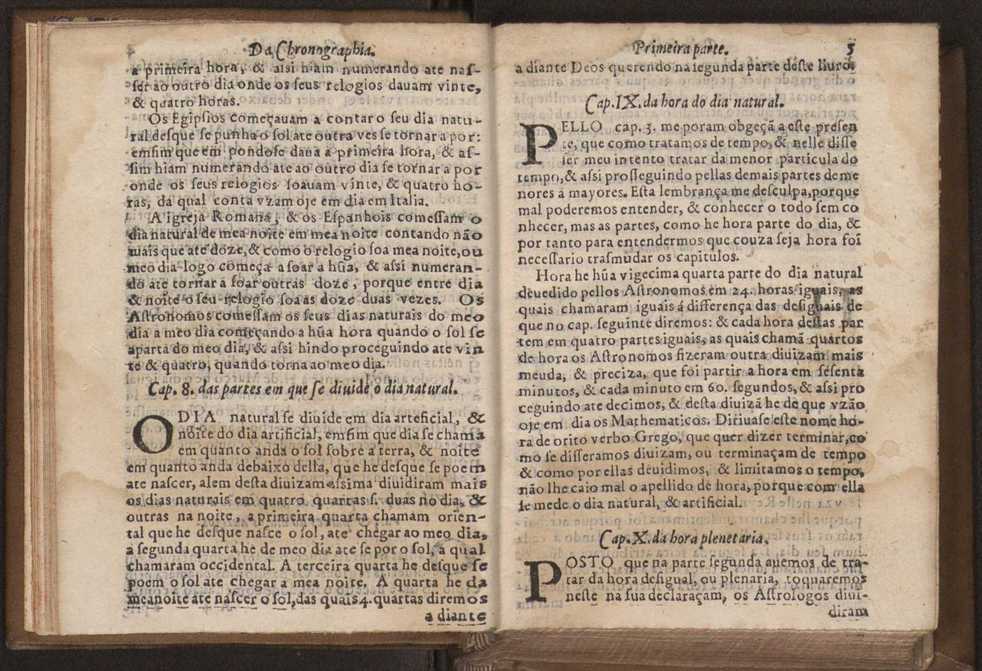 Da Chronographia.
a primeira hora, & assi hiam numerando ate nas-
ser ao outro dia onde os seus relogios dauam vinte,
& quatro horas.
Os Egipsios começauam a contar o seu dia natu-
ral desque se punha o sol ate outra ves se tornar a por:
emsim que em pondose daua a primeira hora, & as-
sim hiam numerando ate ao outro dia se tornar a por
onde os seus relogios soauam vinte, & quatro ho-
ras, da qual conta vzam oje em dia em Italia.
A Igreja Romana, & os Espanhois comessam o
dia natural de mea noite em mea noite contando não
mais que ate doze, & como o relogio soa mea noite, ou
meo dia logo começa a soar a hũa, & assi numeran-
do ate tornar a soar outras doze, porque entre dia
& noite o seu relogio soa as doze duas vezes. Os
Astronomos comessam os seus dias naturais do meo
dia a meo dia começando a hũa hora quando o sol se
aparta do meo dia, & assi hindo proceguindo ate vin
te & quatro, quando torna ao meo dia.
Cap. 8. das partes em que se diuide o dia natural.
O DIA natural se diuide em dia arteficial, &
noite do dia artificial, emsim que dia se chama
em quanto anda o sol sobre a terra, & noite
em quanto anda debaixo della, que he desque se poem
ate nascer, alem desta diuizam assima diuidiram mais
os dias naturais em quatro quartas s. duas no dia, &
outras na noite, a primeira quarta chamam orien-
tal que he desque nasce o sol, ate chegar ao meo dia,
a segunda quarta he de meo dia ate se por o sol, a qual
chamaram occidental. A terceira quarta he desque se
poem o sol ate chegar a mea noite. A quarta he da
mea noite ate nascer o sol, das quais 4. quartas diremos
a diante
Primeira parte. 5
a diante Deos querendo na segunda parte deste liuro.
Cap. IX. da hora do dia natural.
PELLO cap. 3. me poram obgeçã a este presen
te, que como tratamos de tempo, & nelle disse
ser meu intento tratar da menor particula do
tempo, & assi prosseguindo pellas demais partes de me
nores a mayores. Esta lembrança me desculpa, porque
mal poderemos entender, & conhecer o todo sem co
nhecer, mas as partes, como he hora parte do dia, &
por tanto para entendermos que couza seja hora foi
necessario trasmudar os capitulos.
Hora he hũa vigecima quarta parte do dia natural
deuedido pellos Astronomos em 24. horas iguais, as
quais chamaram iguais á differença das desiguais de
que no cap. seguinte diremos: & cada hora destas par
tem em quatro partes iguais, as quais chamã quartos
de hora os Astronomos fizeram outra diuizam mais
meuda, & preciza, que foi partir a hora em sesenta
minutos, & cada minuto em 60. segundos, & assi pro
ceguindo ate decimos, & desta diuizã he de que vzão
oje em dia os Mathematicos. Diriuase este nome ho-
ra de orito verbo Grego, que quer dizer terminar, co
mo se disseramos diuizam, ou terminaçam de tempo
& como por ellas deuidimos, & limitamos o tempo,
não lhe caio mal o apellido de hora, porque com ella
se mede o dia natural, & artificial.
Cap. X. da hora plenetaria.
POSTO que na parte segunda auemos de tra-
tar da hora desigual, ou plenaria, toquaremos
neste na sua declaraçam, os Astrologos diui-
diram